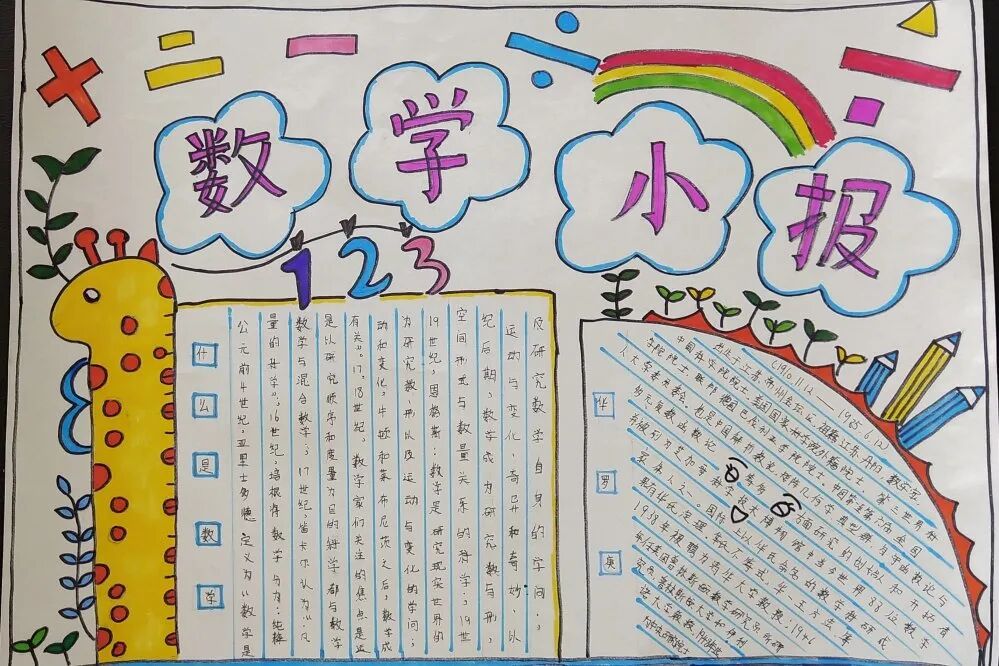 数学小报
1 2 3
什么是数学
公元前4世纪，亚里士多德定义为"数学是
量的科学"。16世纪，培根将数学分为：纯粹
数学与混合数学。17世纪，笛卡尔认为："凡
是以研究顺序和度量为目的科学都与数学
有关"。17、18世纪，数学家们关注的焦点是运
动和变化，牛顿和莱布尼茨之后，数学成
为研究数、形以及运动与变化的学问；
19世纪，恩格斯：数学是研究现实世界的
空间形式与数量关系的科学；19世
纪后期，数学成为研究数与形，
运动与变化，奇已和奇妙，以
及研究数学自身的学问；
华罗庚
(1910.11.12——1985.6.12)
出生于江苏常州金坛区，祖籍江苏丹阳，数学家
中国科学院院士，美国国家科学院外籍院士，第三世界科
学院院士，联邦德国巴伐利亚科学院院士。中国第一至第六届全国
人大常委委员会。他是中国解析数论、矩阵几何学、典型群、自守函数论与
多元复变函数论等方面研究的创始人和开拓者
并被列为芝加哥科学技术博物馆中当今世界88位数学
伟人之一。国际上以华氏命名的数学科研成
果有华氏定理、华氏不等式、华—王方法等
1938年被聘为清华大学教授；1946